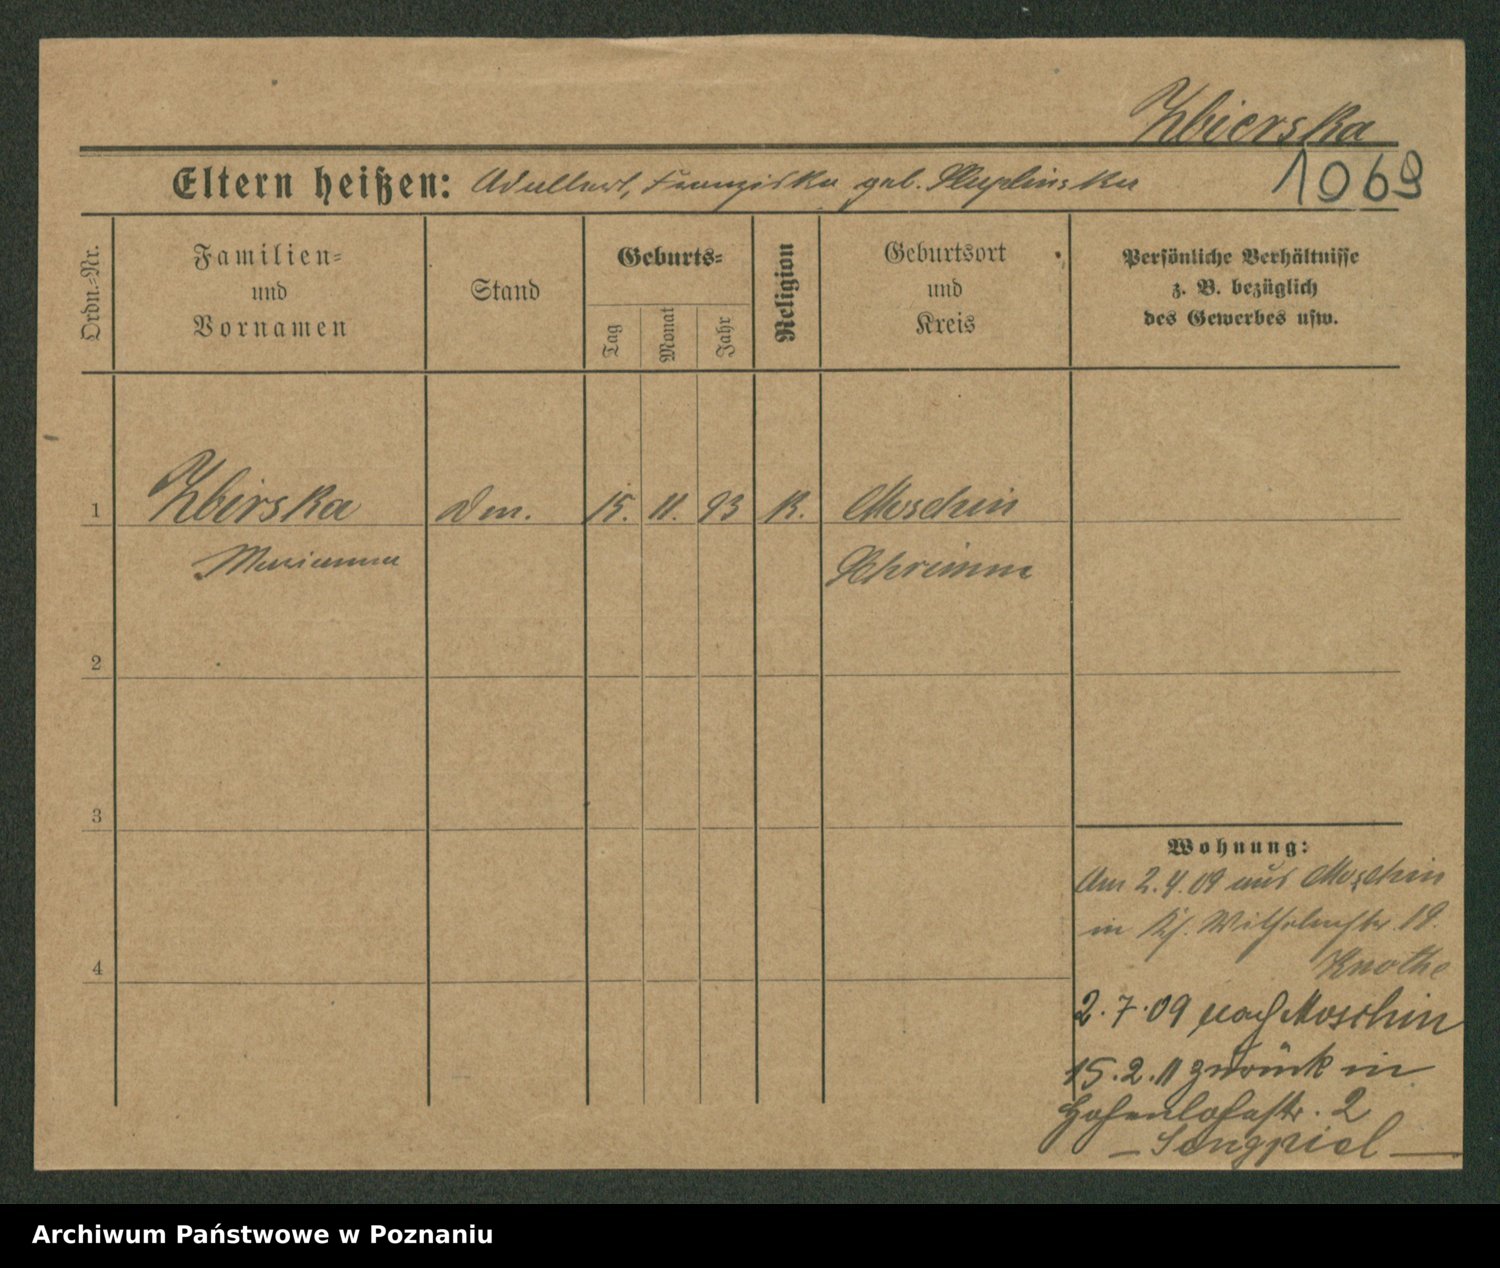 Zbierska
1069
Eltern heißen: Adalbert, Franziska geb.
Ordn.=Nr.
Familien=
und
Vornamen
Stand
Geburts=
Tag
Monat
Jahr
Religion
Geburtsort
und
Kreis
Persönliche Verhältnisse
z. B. bezüglich
des Gewerbes usw.
1 Zbirska 15. 11. 93 K. Moschin
Marianna Schrimm
2
3
4
Wohnung:
Am 2.4.09 aus Moschin
in Wilhelmstr. 19.
Knothe
2.7.09 nach Moschin
15.2.11 zurück in
Hohenlohestr. 2
— Sengpiel —
Archiwum Państwowe w Poznaniu